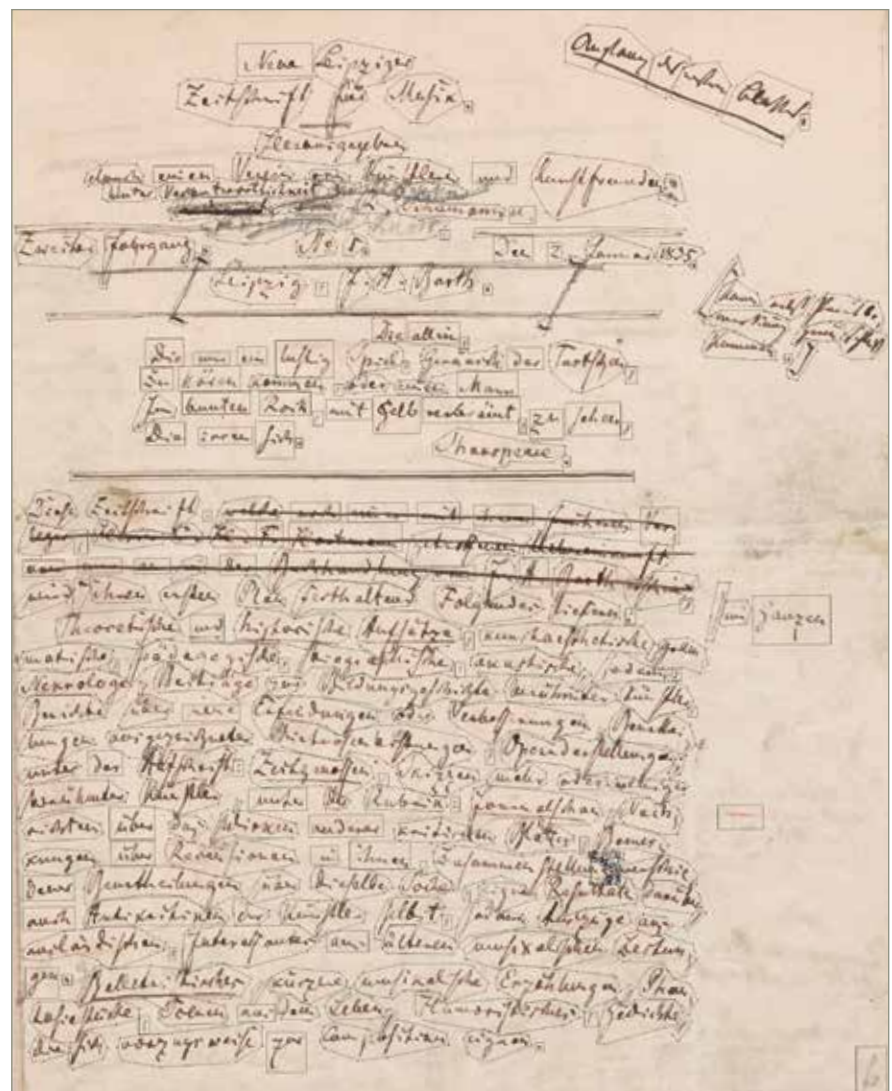 Anfang des ersten Blattes.
Neue Leipziger
Zeitschrift für Musik.
Herausgegeben
durch einen Verein von Künstlern und Kunstfreunden.
unter Verantwortlichkeit
Zweiter Jahrgang. No 1. Den 2. Januar 1835.
Leipzig: J. A. Barth.
Die allein,
Die nur ein lustig Spiel, Geräusch der Tartschen,
Zu hören kommen, oder einen Mann
Im bunten Rock, mit Gelb verbrämt, zu sehen,
Die irren sich.
Shakspeare.
Diese Zeitschrift,
wird, ihren ersten Plan festhaltend, Folgendes liefern:
im Ganzen
Theoretische und historische Aufsätze, kunstaesthetische, gram
matische, pädagogische, biographische, akustische, sodann
Nekrologe, Beiträge zur Bildungsgeschichte berühmter Künstler,
Berichte über neue Erfindungen oder Verbesserungen, Beurthei
lungen ausgezeichneter Virtuosenleistungen, Operndarstellungen;
unter der Aufschrift: Zeitgenossen, Skizzen mehr oder weniger
berühmter Künstler, unter der Rubrik: Journalschau, Nach
richten über das Wirken anderer kritischen Blätter, Bemer
kungen über Recensionen in ihnen, Zusammenstellung verschie
dener Beurtheilungen über dieselbe Sache, eigne Resultate darüber,
auch Antikritiken der Künstler selbst, sodann Auszüge aus
ausländischen, Interessantes aus älteren musikalischen Zeitun
gen. Belletristisches, kürzere musikalische Erzählungen, Phan
tasiestücke, Scenen aus dem Leben, Humoristisches, Gedichte,
die sich vorzugsweise zur Composition eignen.